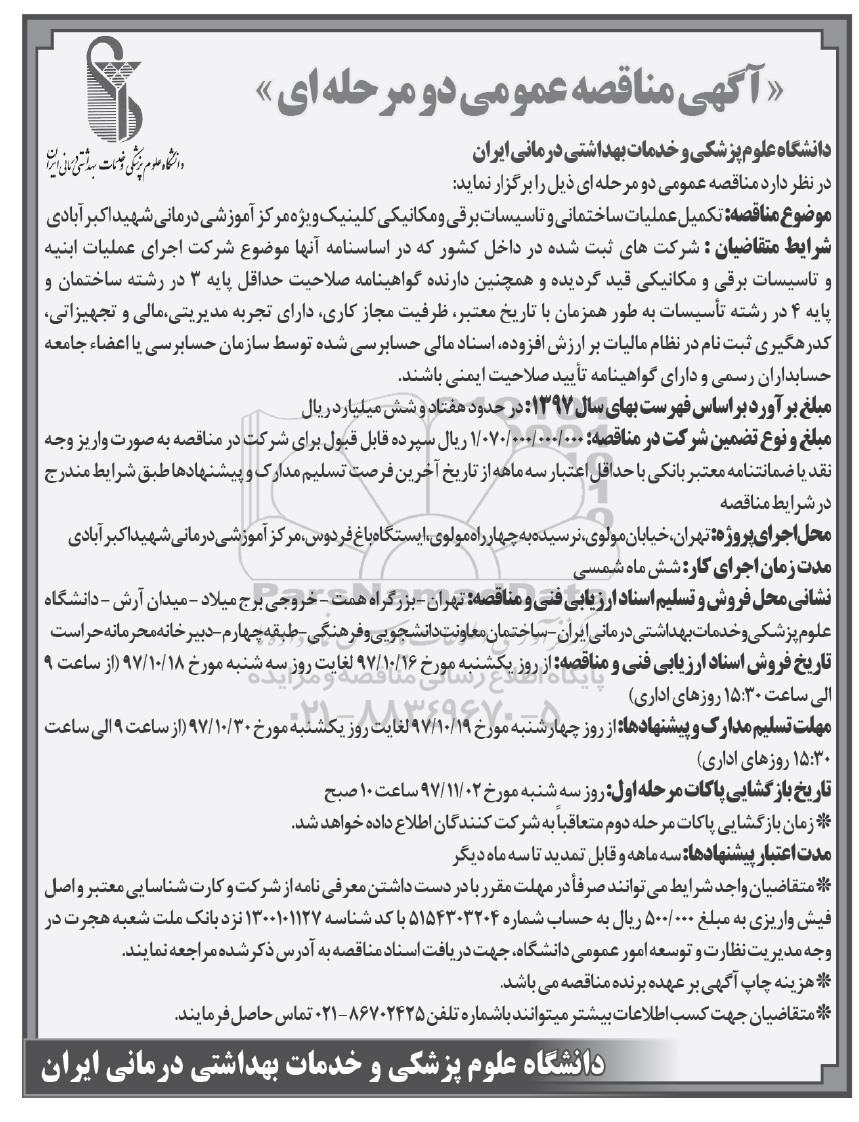 «آگهی مناقصه عمومی دو مرحله ای»
دانشگاه علوم پزشکی و خدمات بهداشتی درمانی ایران
دانشگاه علوم پزشکی و خدمات بهداشتی درمانی ایران
در نظر دارد مناقصه عمومی دو مرحله ای ذیل را برگزار نماید:
موضوع مناقصه: تکمیل عملیات ساختمانی و تاسیسات برقی و مکانیکی کلینیک ویژه مرکز آموزشی درمانی شهید اکبر آبادی
شرایط متقاضیان : شرکت های ثبت شده در داخل کشور که در اساسنامه آنها موضوع شرکت اجرای عملیات ابنیه
و تاسیسات برقی و مکانیکی قید گردیده و همچنین دارنده گواهینامه صلاحیت حداقل پایه ۳ در رشته ساختمان و
پایه ۴ در رشته تأسیسات به طور همزمان با تاریخ معتبر، ظرفیت مجاز کاری، دارای تجربه مدیریتی،مالی و تجهیزاتی،
کدرهگیری ثبت نام در نظام مالیات بر ارزش افزوده، اسناد مالی حسابرسی شده توسط سازمان حسابرسی یا اعضاء جامعه
حسابداران رسمی و دارای گواهینامه تأیید صلاحیت ایمنی باشند.
مبلغ برآورد بر اساس فهرست بهای سال ۱۳۹۷: در حدود هفتاد و شش میلیارد ریال
مبلغ و نوع تضمین شرکت در مناقصه: ۱/۰۷۰/۰۰۰/۰۰۰/۰۰۰ ریال سپرده قابل قبول برای شرکت در مناقصه به صورت واریز وجه
نقد یا ضمانتنامه معتبر بانکی با حداقل اعتبار سه ماهه از تاریخ آخرین فرصت تسلیم مدارک و پیشنهادها طبق شرایط مندرج
در شرایط مناقصه
محل اجرای پروژه: تهران، خیابان مولوی، نرسیده به چهارراه مولوی، ایستگاه باغ فردوس، مرکز آموزشی درمانی شهید اکبر آبادی
مدت زمان اجرای کار: شش ماه شمسی
نشانی محل فروش و تسلیم اسناد ارزیابی فنی و مناقصه: تهران - بزرگراه همت - خروجی برج میلاد - میدان آرش - دانشگاه
علوم پزشکی و خدمات بهداشتی درمانی ایران - ساختمان معاونت دانشجویی و فرهنگی - طبقه چهارم - دبیرخانه محرمانه حراست
تاریخ فروش اسناد ارزیابی فنی و مناقصه: از روز یکشنبه مورخ ۹۷/۱۰/۱۶ لغایت روز سه شنبه مورخ ۹۷/۱۰/۱۸ (از ساعت ۹
الی ساعت ۱۵:۳۰ روزهای اداری)
مهلت تسلیم مدارک و پیشنهادها: از روز چهارشنبه مورخ ۹۷/۱۰/۱۹ لغایت روز یکشنبه مورخ ۹۷/۱۰/۳۰ (از ساعت ۹ الی ساعت
۱۵:۳۰ روزهای اداری)
تاریخ بازگشایی پاکات مرحله اول: روز سه شنبه مورخ ۹۷/۱۱/۰۲ ساعت ۱۰ صبح
* زمان بازگشایی پاکات مرحله دوم متعاقباً به شرکت کنندگان اطلاع داده خواهد شد.
مدت اعتبار پیشنهادها: سه ماهه و قابل تمدید تا سه ماه دیگر
* متقاضیان واجد شرایط می توانند صرفاً در مهلت مقرر با در دست داشتن معرفی نامه از شرکت و کارت شناسایی معتبر و اصل
فیش واریزی به مبلغ ۵۰۰/۰۰۰ ریال به حساب شماره ۵۱۵۴۳۰۳۲۰۴ با کد شناسه ۱۳۰۰۱۰۱۱۲۷ نزد بانک ملت شعبه هجرت در
وجه مدیریت نظارت و توسعه امور عمومی دانشگاه، جهت دریافت اسناد مناقصه به آدرس ذکر شده مراجعه نمایند.
* هزینه چاپ آگهی بر عهده برنده مناقصه می باشد.
* متقاضیان جهت کسب اطلاعات بیشتر میتوانند با شماره تلفن ۸۶۷۰۲۴۲۵-۰۲۱ تماس حاصل فرمایند.
دانشگاه علوم پزشکی و خدمات بهداشتی درمانی ایران
ParsNamadData
پایگاه اطلاع رسانی مناقصه و مزایده
۰۲۱-۸۸۳۴۹۶۷۰-۵